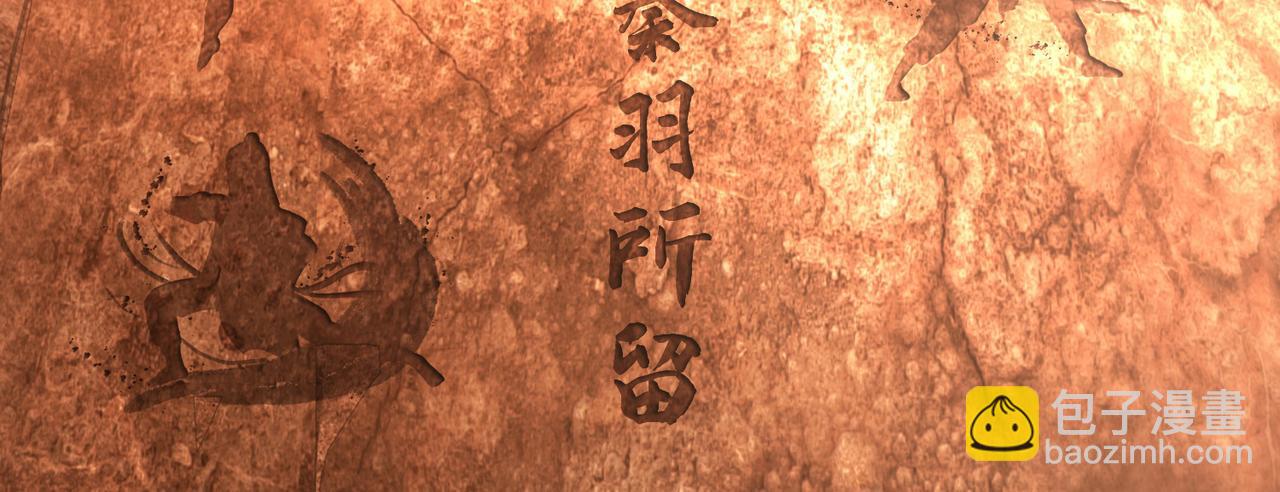 秦羽所留
包子漫畫
baozimh.com